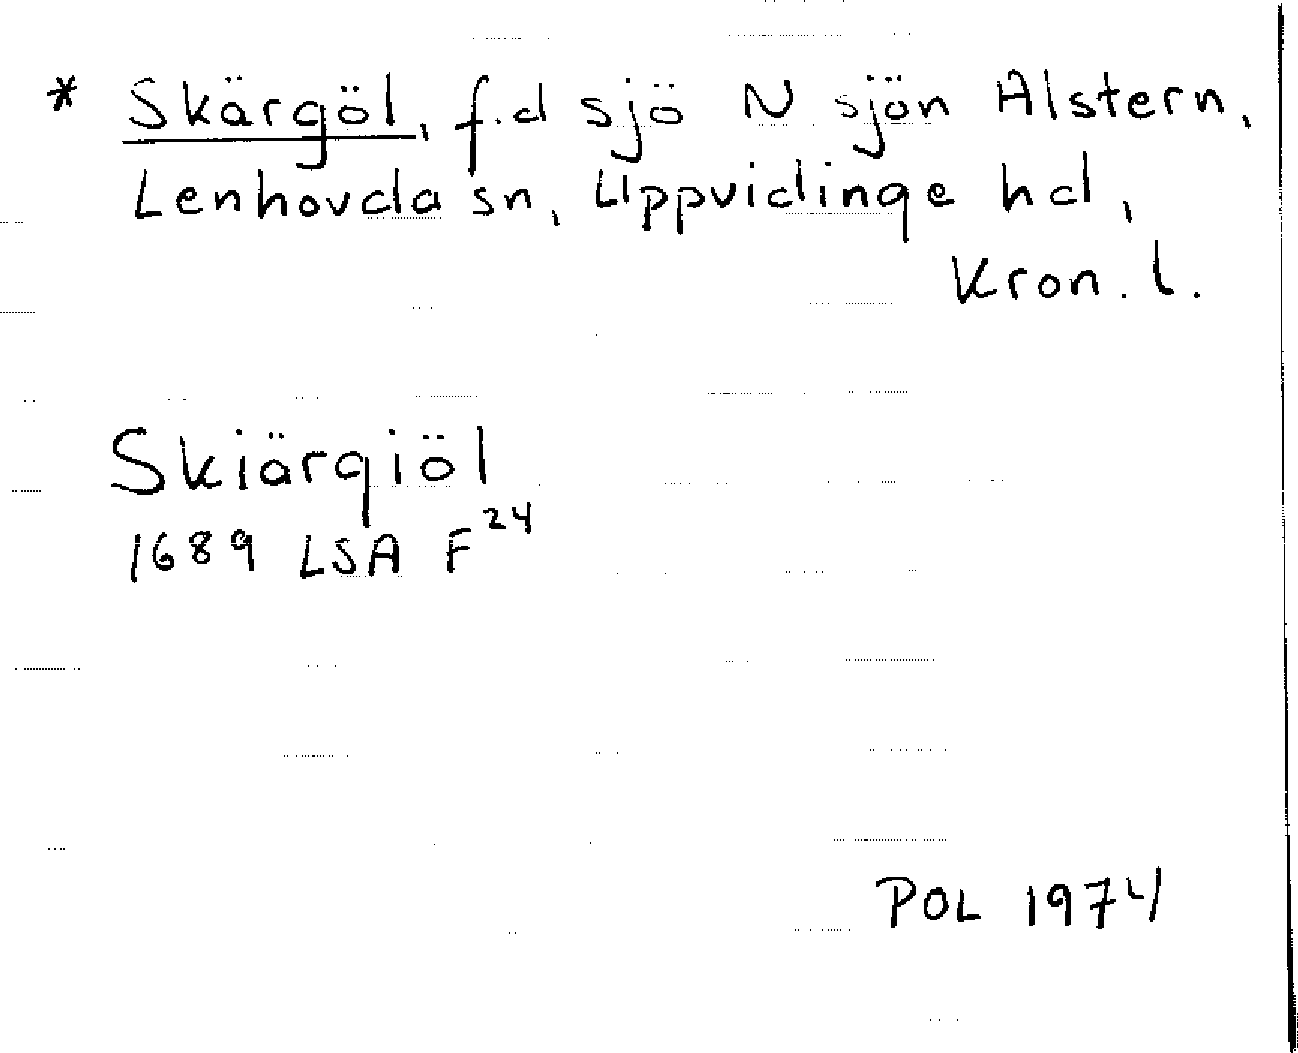 * Skärgöl, f.d sjö N sjön Alstern,
Lenhovda sn, Uppvidinge hd,
Kron. l.
Skiärgiöl
1689 LSA F24
POL 1974